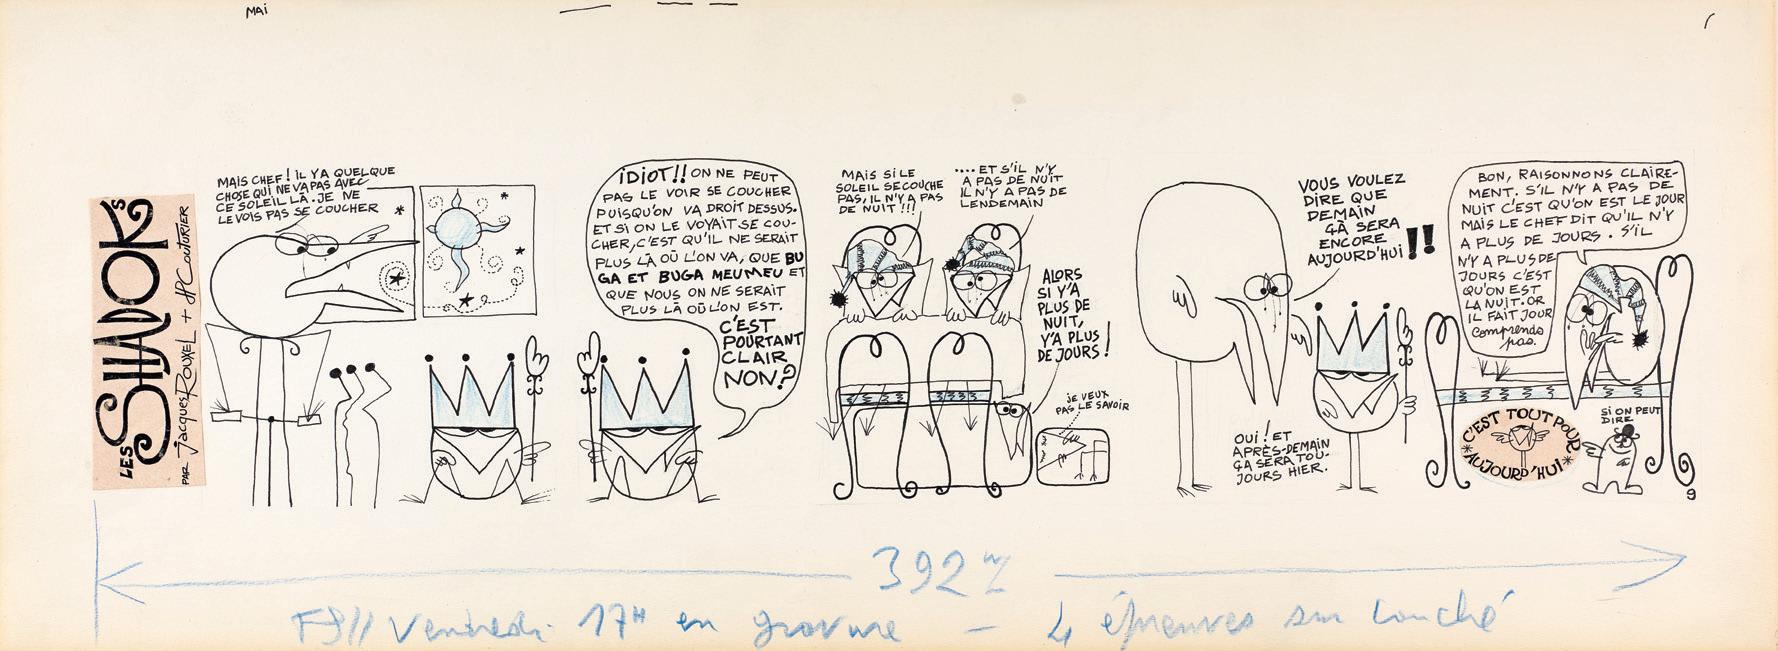 MAI
LES SHADOKS
PAR JACQUES ROUXEL + JPC COUTURIER
MAIS CHEF! IL YA QUELQUE
CHOSE QUI NE VA PAS AVEC
CE SOLEIL LÀ. JE NE
LE VOIS PAS SE COUCHER
IDIOT!! ON NE PEUT
PAS LE VOIR SE COUCHER
PUISQU'ON VA DROIT DESSUS.
ET SI ON LE VOYAIT SE COU-
CHER, C'EST QU'IL NE SERAIT
PLUS LÀ OÙ L'ON VA, QUE BU
GA ET BUGA MEUMEU ET
QUE NOUS ON NE SERAIT
PLUS LÀ OÙ L'ON EST.
C'EST
POURTANT
CLAIR
NON?
MAIS SI LE
SOLEIL SE COUCHE
PAS, IL N'Y A PAS
DE NUIT!!!
....ET S'IL N'Y
A PAS DE NUIT
IL N'Y A PAS DE
LENDEMAIN
ALORS
SI Y'A
PLUS DE
NUIT,
Y'A PLUS
DE JOURS!
JE VEUX
PAS LE SAVOIR
VOUS VOULEZ
DIRE QUE
DEMAIN
ÇÀ SERA
ENCORE
AUJOURD'HUI!!
OUI! ET
APRÈS-DEMAIN
ÇA SERA TOU-
JOURS HIER.
BON, RAISONNONS CLAIRE-
MENT. S'IL N'Y A PAS DE
NUIT C'EST QU'ON EST LE JOUR
MAIS LE CHEF DIT QU'IL N'Y
A PLUS DE JOURS. S'IL
N'Y A PLUS DE
JOURS C'EST
QU'ON EST
LA NUIT. OR
IL FAIT JOUR
Comprends
pas.
C'EST TOUT POUR
AUJOURD'HUI
SI ON PEUT
DIRE
9
392
Vendredi 17H en gravure - 4 épreuves sur couché